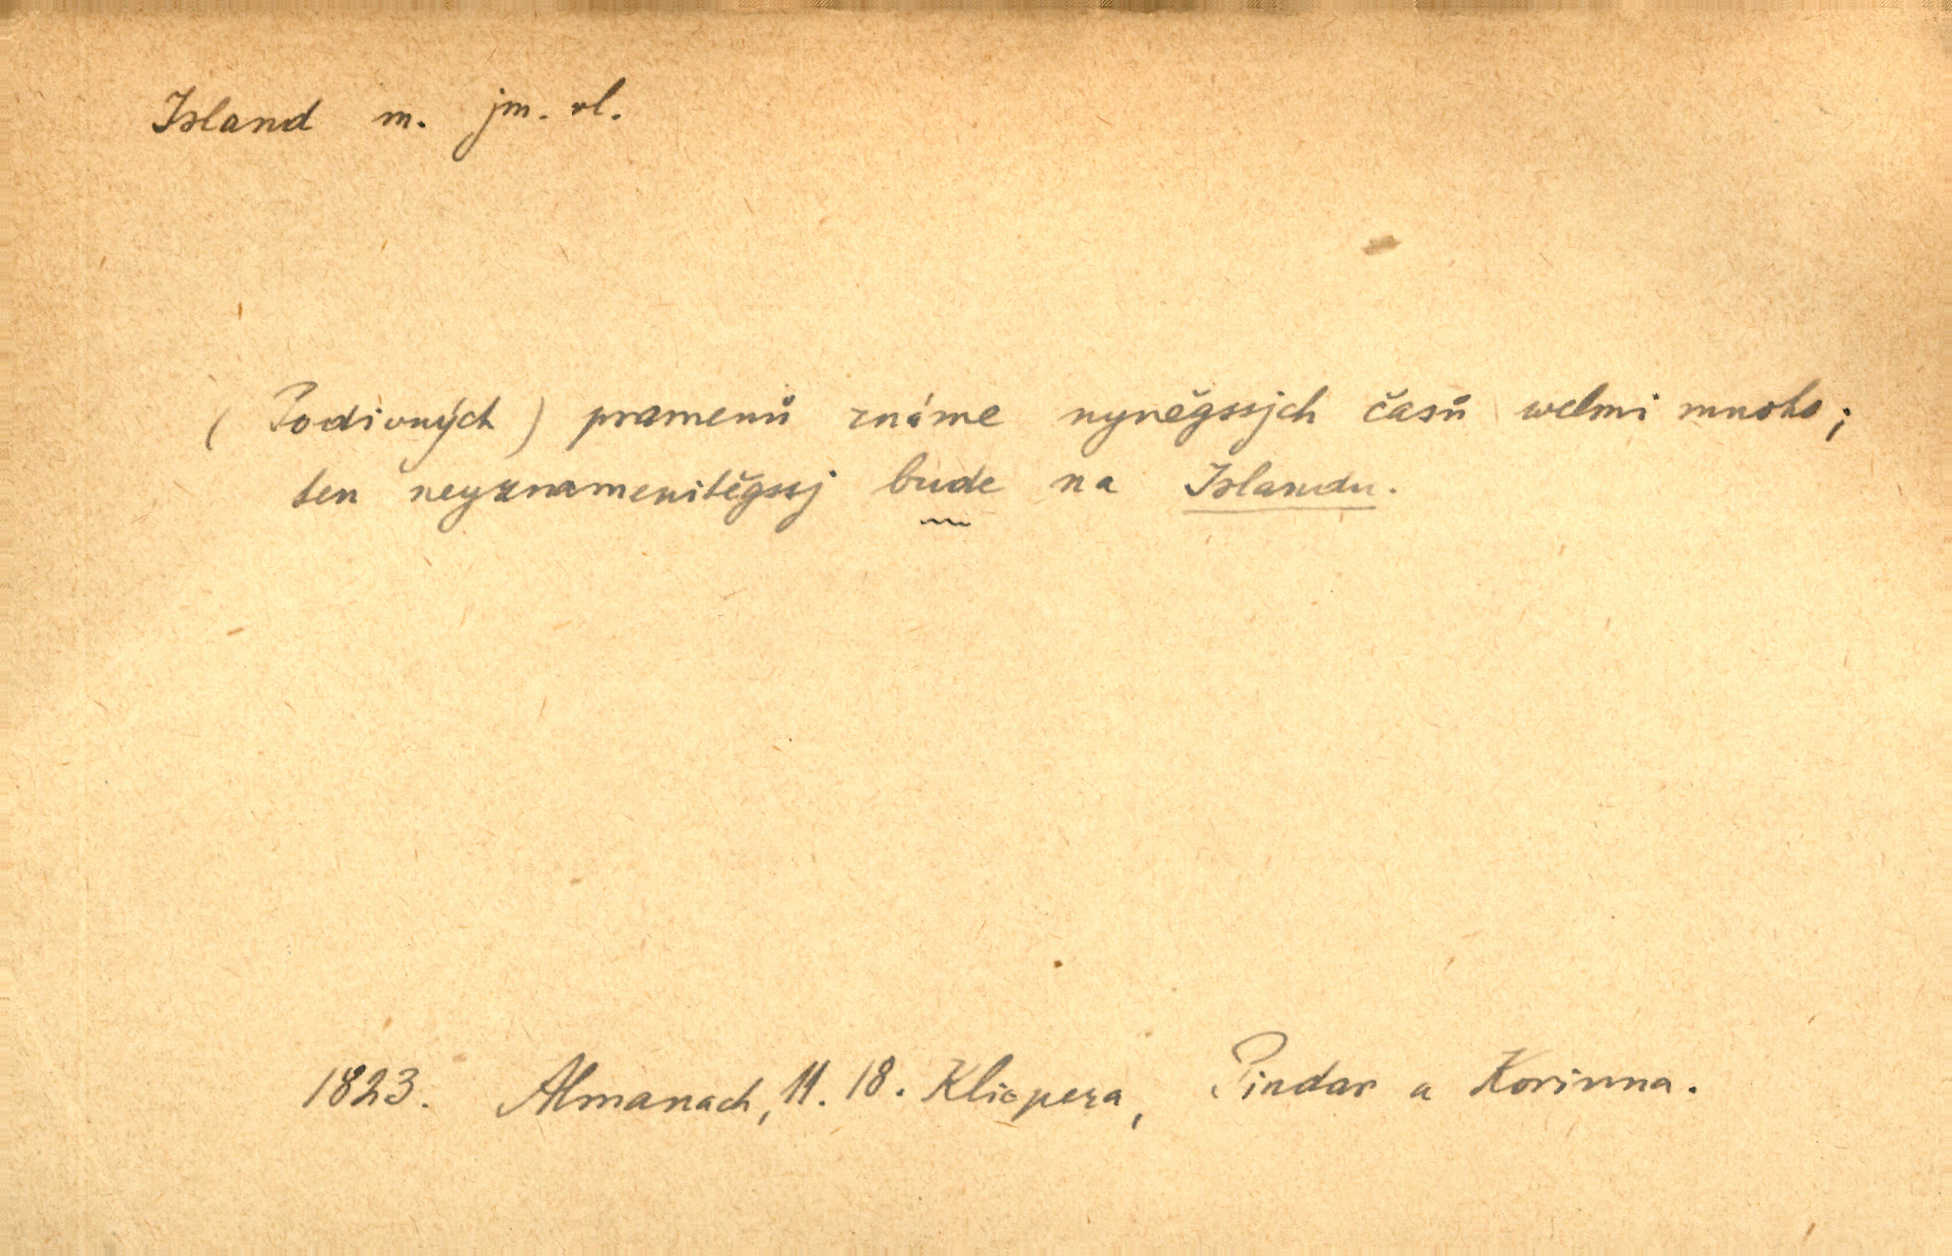 Island m. jm. vl.
(Podivných) pramenů známe nyněgssjch časů welmi mnoho;
ten neyznamenitěgssj bude na Islandu.
1823. Almanach, 11. 18. Klicpera, Pindar a Korinna.